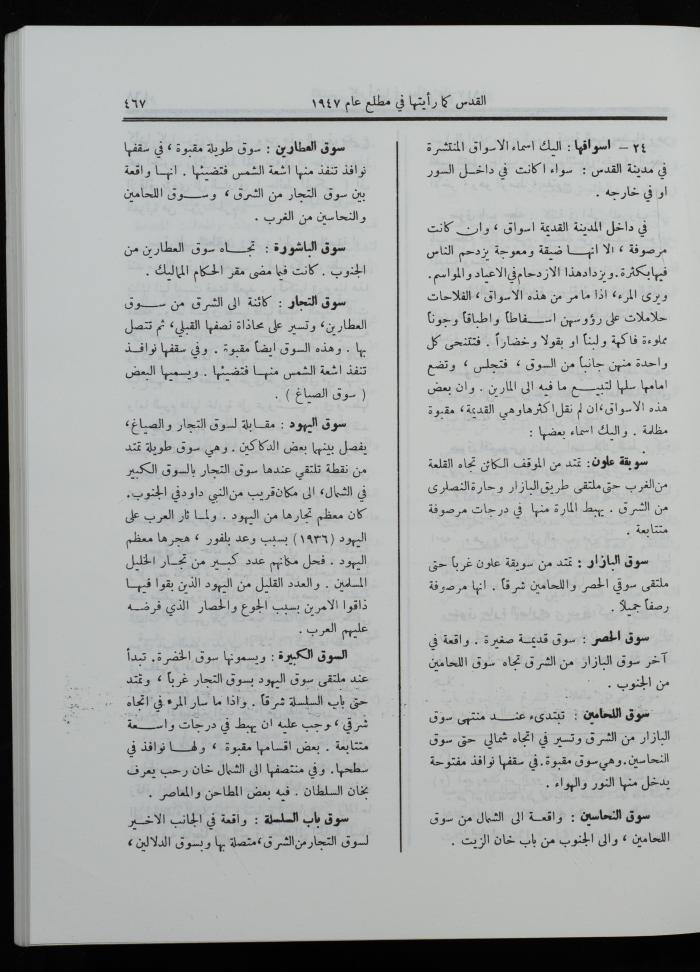 القدس كما رأيتها في مطلع عام ١٩٤٧
٤٦٧
٢٤ – اسواقها : اليك اسماء الاسواق المنتشرة
في مدينة القدس : سواء اكانت في داخل السور
او في خارجه .
في داخل المدينة القديمة اسواق ، وان كانت
مرصوفة ، الا انها ضيقة ومعوجة يزدحم الناس
فيها بكثرة . ويزداد هذا الازدحام في الاعياد والمواسم .
ويرى المرء، اذا ما مر من هذه الاسواق ، الفلاحات
حلاملات على رؤوسهن اسفاطاً واطباقاً وجوناً
مملوءة فاكهة ولبناً او بقولا وخضاراً . فتتنحى كل
واحدة منهن جانباً من السوق ، فتجلس ، وتضع
امامها سلها لتبيع ما فيه الى المارين . وان بعض
هذه الاسواق ،ان لم نقل اكثرها وهي القديمة، مقبوة
مظلمة . واليك اسماء بعضها :
سويقة علون : تمتد من الموقف الكائن تجاه القلعة
من الغرب حتى ملتقى طريق البازار وحارة النصارى
من الشرق . يهبط المارة منها في درجات مرصوفة
متتابعة .
سوق البازار : تمتد من سويقة علون غرباً حتى
ملتقى سوقي الحصر واللحامين شرقاً . انها مرصوفة
رصفاً جميلاً .
سوق الحصر : سوق قديمة صغيرة . واقعة في
آخر سوق البازار من الشرق تجاه سوق اللحامين
من الجنوب .
سوق اللحامين : تبتدىء عند منتهى سوق
البازار من الشرق وتسير في اتجاه شمالي حتى سوق
النحاسين. وهي سوق مقبوة. في سقفها نوافذ مفتوحة
يدخل منها النور والهواء .
سوق النحاسين : واقعة الى الشمال من سوق
اللحامين ، والى الجنوب من باب خان الزيت .
سوق العطارين : سوق طويلة مقبوة ، في سقفها
نوافذ تنفذ منها اشعة الشمس فتضيئها . انها واقعة
بين سوق التجار من الشرق ، وسوق اللحامين
والنحاسين من الغرب .
سوق الباشورة : تجاه سوق العطارين من
الجنوب . كانت فيما مضى مقر الحكام المماليك .
سوق التجار : كائنة الى الشرق من سوق
العطارين، وتسير على محاذاة نصفها القبلي، ثم تتصل
بها . وهذه السوق ايضاً مقبوة . وفي سقفها نوافذ
تنفذ اشعة الشمس منها فتضيئها . ويسميها البعض
( سوق الصياغ ) .
سوق اليهود : مقابلة لسوق التجار والصياغ،
يفصل بينهما بعض الدكاكين . وهي سوق طويلة تمتد
من نقطة تلتقي عندها سوق التجار بالسوق الكبير
في الشمال، الى مكان قريب من النبي داود في الجنوب.
كان معظم تجارها من اليهود . ولما ثار العرب على
اليهود (١٩٣٦) بسبب وعد بلفور ، هجرها معظم
اليهود . فحل مكانهم عدد كبير من تجار الخليل
المسلمين . والعدد القليل من اليهود الذين بقوا فيها
ذاقوا الامرين بسبب الجوع والحصار الذي فرضه
عليهم العرب .
السوق الكبيرة : ويسمونها سوق الخضرة. تبدأ
عند ملتقى سوق اليهود بسوق التجار غرباً ، وتمتد
حتى باب السلسلة شرقاً . واذا ما سار المرء في اتجاه
شرقي ،وجب عليه ان يهبط في درجات واسعة
متتابعة . بعض اقسامها مقبوة ، ولها نوافذ في
سطحها. وفي منتصفها الى الشمال خان رحب يعرف
بخان السلطان . فيه بعض المطاحن والمعاصر .
سوق باب السلسلة : واقعة في الجانب الاخير
لسوق التجار من الشرق، متصلة بها وبسوق الدلالين ،